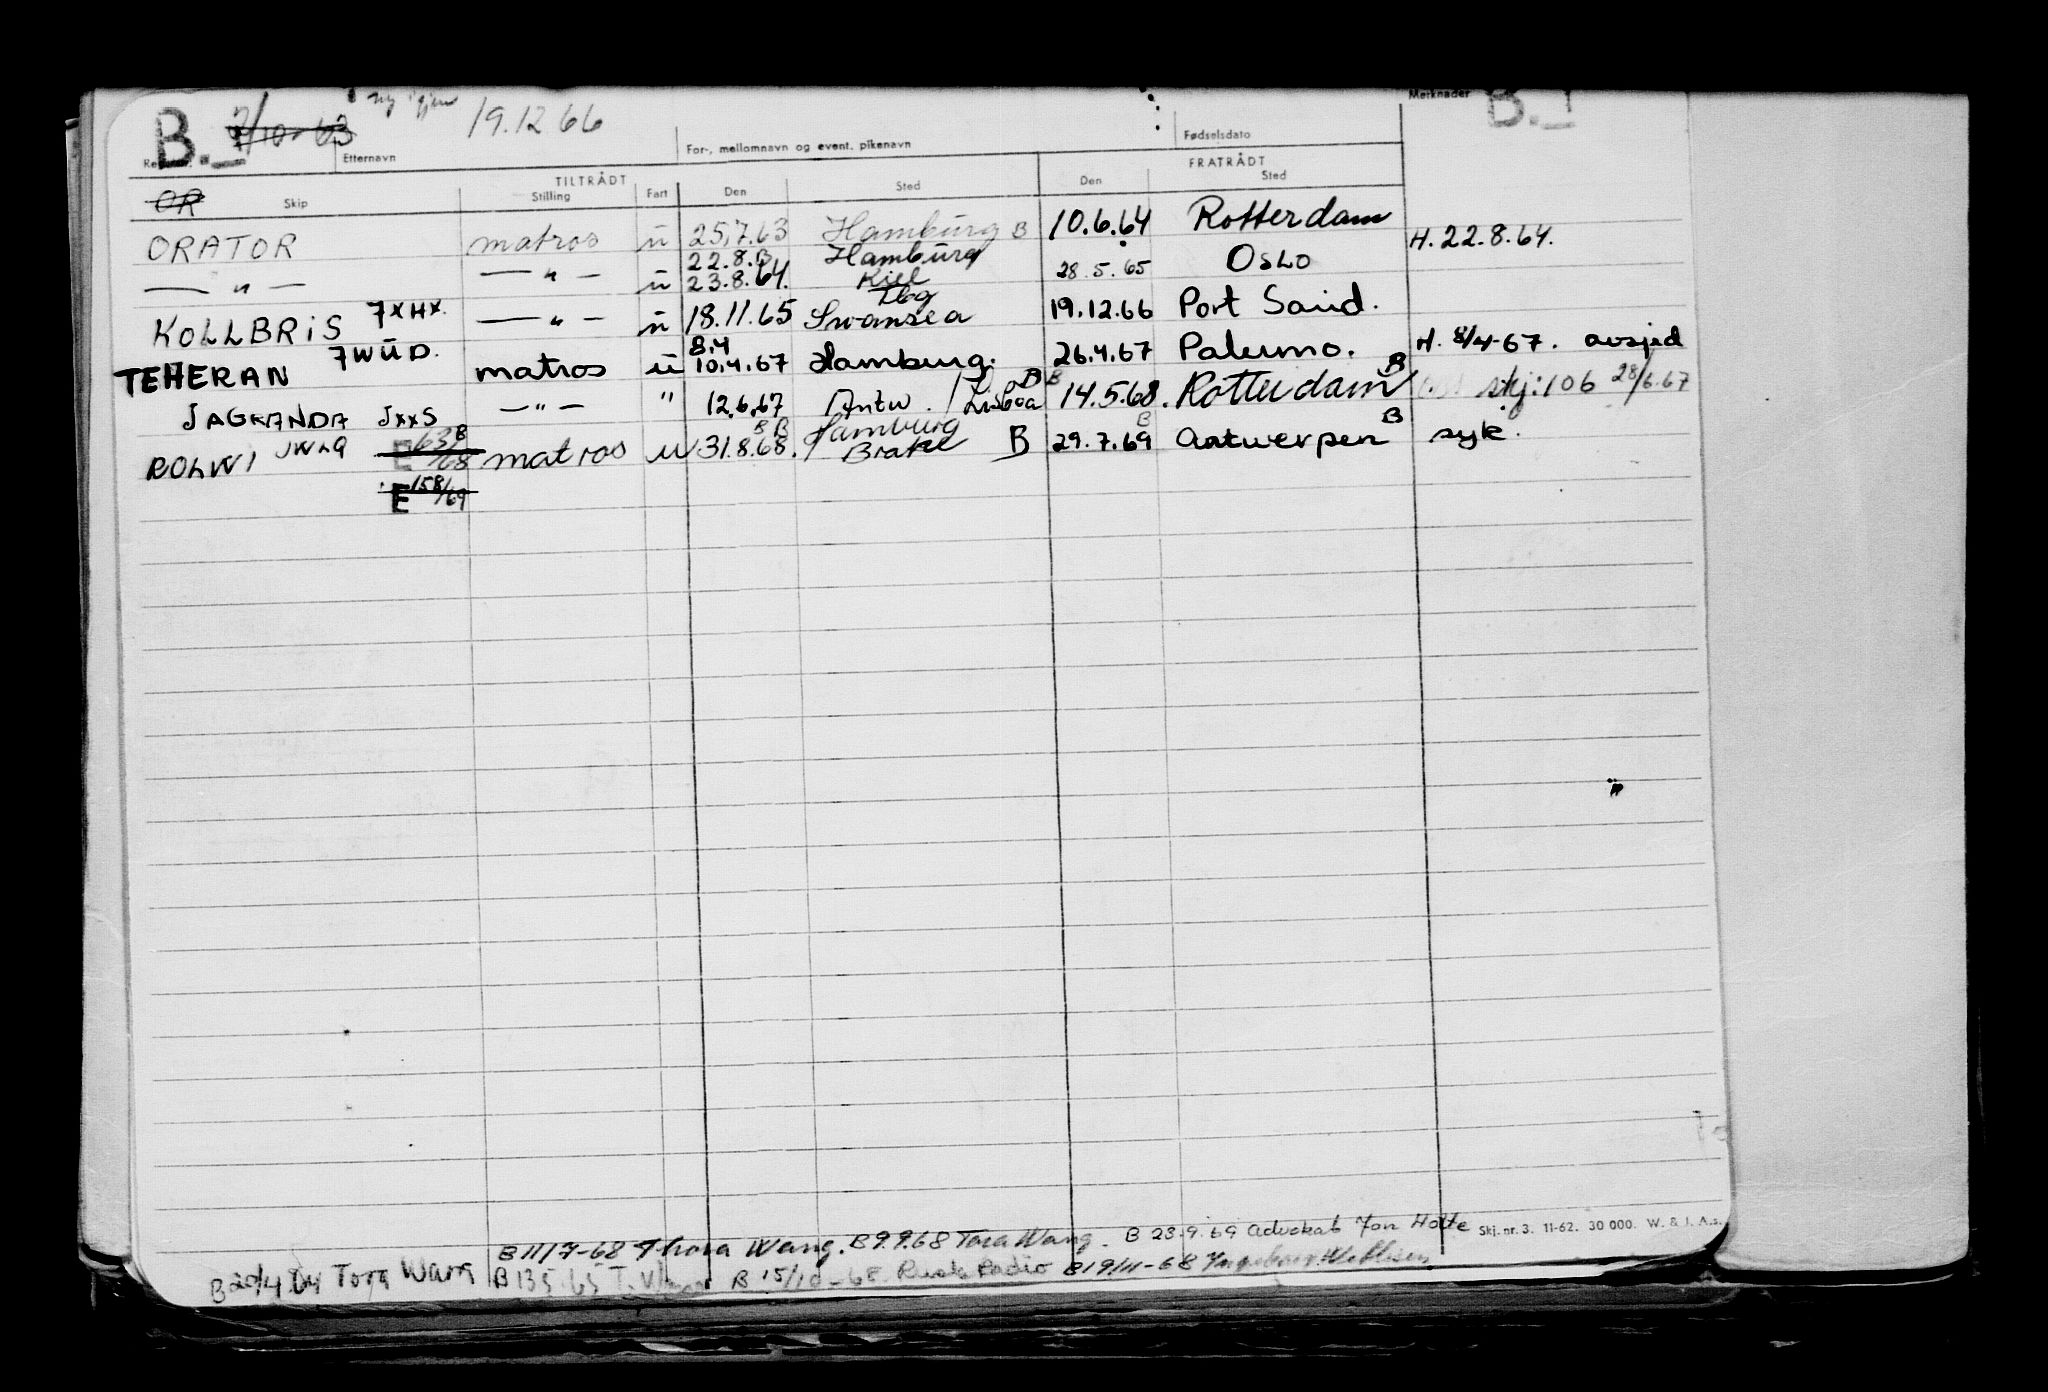 B. 7/10-63 ny igjen 19.12.66 Merknader B.
Etternavn For-, mellomnavn og event. pikenavn Fødselsdato
TILTRÅDT FRATRÅDT
OR Skip Stilling Fart Den Sted Den Sted
ORATOR matros u 25.7.63 Hamburg B 10.6.64 Rotterdam
22.8. B Hamburg H. 22.8.64.
— " — — " — u 23.8.64. Kiel 28.5.65 Oslo
Hbg
KOLLBRIS 7XHX. — " — u 18.11.65 Swansea 19.12.66 Port Said.
8.4
TEHERAN 7WUD. matros u 10.4.67 Hamburg. 26.4.67 Palermo. H. 8/4-67. avsjed
JAGRANDA JXXS — " — " 12.6.67 Antw. / Lisboa B B 14.5.68. Rotterdam B skj: 106 28/6.67
B B Hamburg B B
ROLWI JWLQ E 63/68 B matros u 31.8.68. Brake B 29.7.69 Antwerpen syk.
E 158/69
B 11/7-68 Thora Wang. B 9.9.68 Tora Wang. B 23.9.69 Advokat Jon Holte Skj. nr. 3. 11-62. 30 000. W. & J. A.s.
B 20/4 64 Tora Wang B 13.5.65 T. Wang B 15/10-68 Rusk Radio B 19/11-68